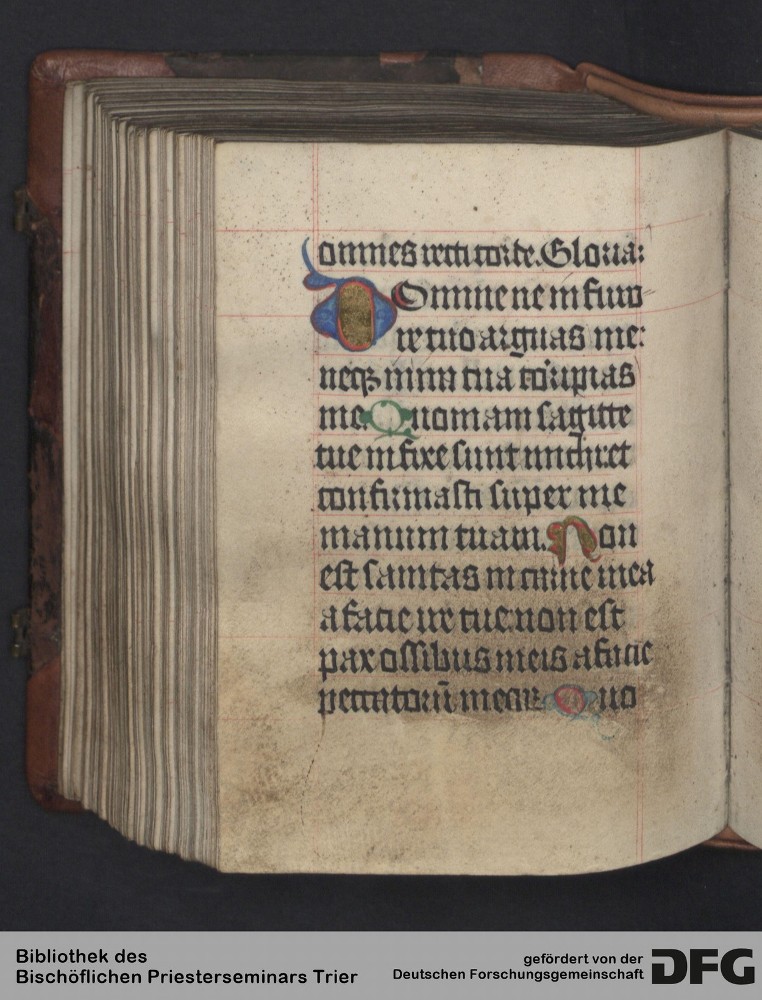 omnes recti corde. Gloria:
Domine ne in furo
re tuo arguas me:
neqꝫ in ira tua corripias
me. Quoniam sagitte
tue infixe sunt michi: et
confirmasti super me
manum tuam. Non
est sanitas in carne mea
a facie ire tue: non est
pax ossibus meis a facie
peccatorū meoꝝ. Quo
Bibliothek des
Bischöflichen Priesterseminars Trier
gefördert von der
Deutschen Forschungsgemeinschaft
DFG